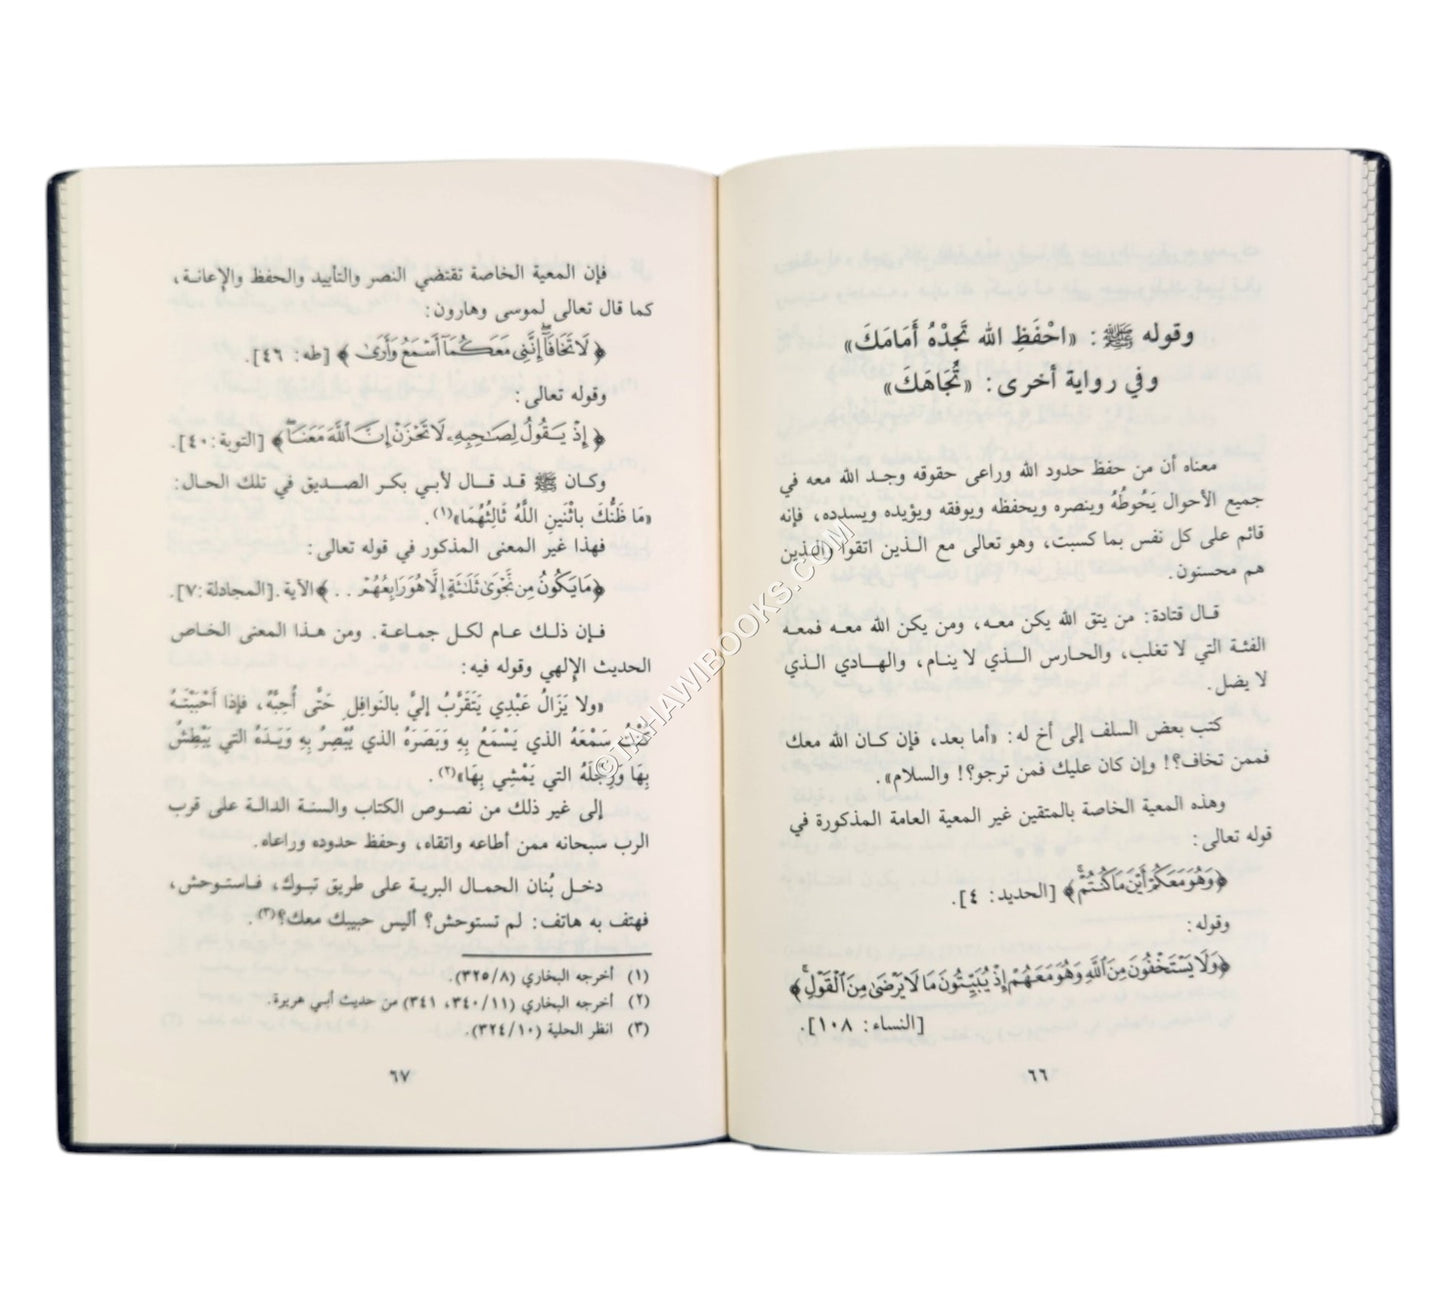 وقوله ﷺ: «احْفَظِ الله تَجِدْهُ أَمَامَكَ»
وفي رواية أخرى: «تُجَاهَكَ»
معناه أن من حفظ حدود الله وراعى حقوقه وجد الله معه في
جميع الأحوال يَحُوطُهُ وينصره ويحفظه ويوفقه ويؤيده ويسدده، فإنه
قائم على كل نفس بما كسبت، وهو تعالى مع الذين اتقوا والذين
هم محسنون.
قال قتادة: من يتق الله يكن معه، ومن يكن الله معه فمعه
الفئة التي لا تغلب، والحارس الذي لا ينام، والهادي الذي
لا يضل.
كتب بعض السلف إلى أخ له: «أما بعد، فإن كان الله معك
فممن تخاف؟! وإن كان عليك فمن ترجو؟! والسلام».
وهذه المعية الخاصة بالمتقين غير المعية العامة المذكورة في
قوله تعالى:
﴿وَهُوَ مَعَكُمْ أَيْنَ مَا كُنتُمْ﴾ [الحديد: ٤].
وقوله:
﴿وَلَا يَسْتَخْفُونَ مِنَ ٱللَّهِ وَهُوَ مَعَهُمْ إِذْ يُبَيِّتُونَ مَا لَا يَرْضَىٰ مِنَ ٱلْقَوْلِ﴾
[النساء: ١٠٨].
٦٦
فإن المعية الخاصة تقتضي النصر والتأييد والحفظ والإعانة،
كما قال تعالى لموسى وهارون:
﴿لَا تَخَافَآ إِنَّنِى مَعَكُمَآ أَسْمَعُ وَأَرَىٰ﴾ [طه: ٤٦].
وقوله تعالى:
﴿إِذْ يَقُولُ لِصَاحِبِهِۦ لَا تَحْزَنْ إِنَّ ٱللَّهَ مَعَنَا﴾ [التوبة: ٤٠].
وكان ﷺ قد قال لأبي بكر الصديق في تلك الحال:
«مَا ظَنُّكَ بِاثْنَينِ اللَّهُ ثَالِثُهُمَا»(١).
فهذا غير المعنى المذكور في قوله تعالى:
﴿مَا يَكُونُ مِن نَّجْوَىٰ ثَلَٰثَةٍ إِلَّا هُوَ رَابِعُهُمْ . . ﴾ الآية. [المجادلة: ٧].
فإن ذلك عام لكل جماعة. ومن هذا المعنى الخاص
الحديث الإلهي وقوله فيه:
«ولا يَزَالُ عَبْدِي يَتَقَرَّبُ إليَّ بالنَوافِلِ حَتَّى أُحِبَّهُ، فإذا أَحْبَبْتَهُ
كُنْتُ سَمْعَهُ الذي يَسْمَعُ بِهِ وَبَصَرَهُ الذي يُبْصِرُ بِهِ وَيَدَهُ التي يَبْطِشُ
بِهَا وَرِجْلَهُ التي يَمْشِي بِهَا»(٢).
إلى غير ذلك من نصوص الكتاب والسنة الدالة على قرب
الرب سبحانه ممن أطاعه واتقاه، وحفظ حدوده وراعاه.
دخل بُنان الحمال البرية على طريق تبوك، فاستوحش،
فهتف به هاتف: لم تستوحش؟ أليس حبيبك معك؟(٣).
(١) أخرجه البخاري (٣٢٥/٨).
(٢) أخرجه البخاري (٣٤٠/١١، ٣٤١) من حديث أبي هريرة.
(٣) انظر الحلية (٣٢٤/١٠).
٦٧
©TAHAWIBOOKS.COM